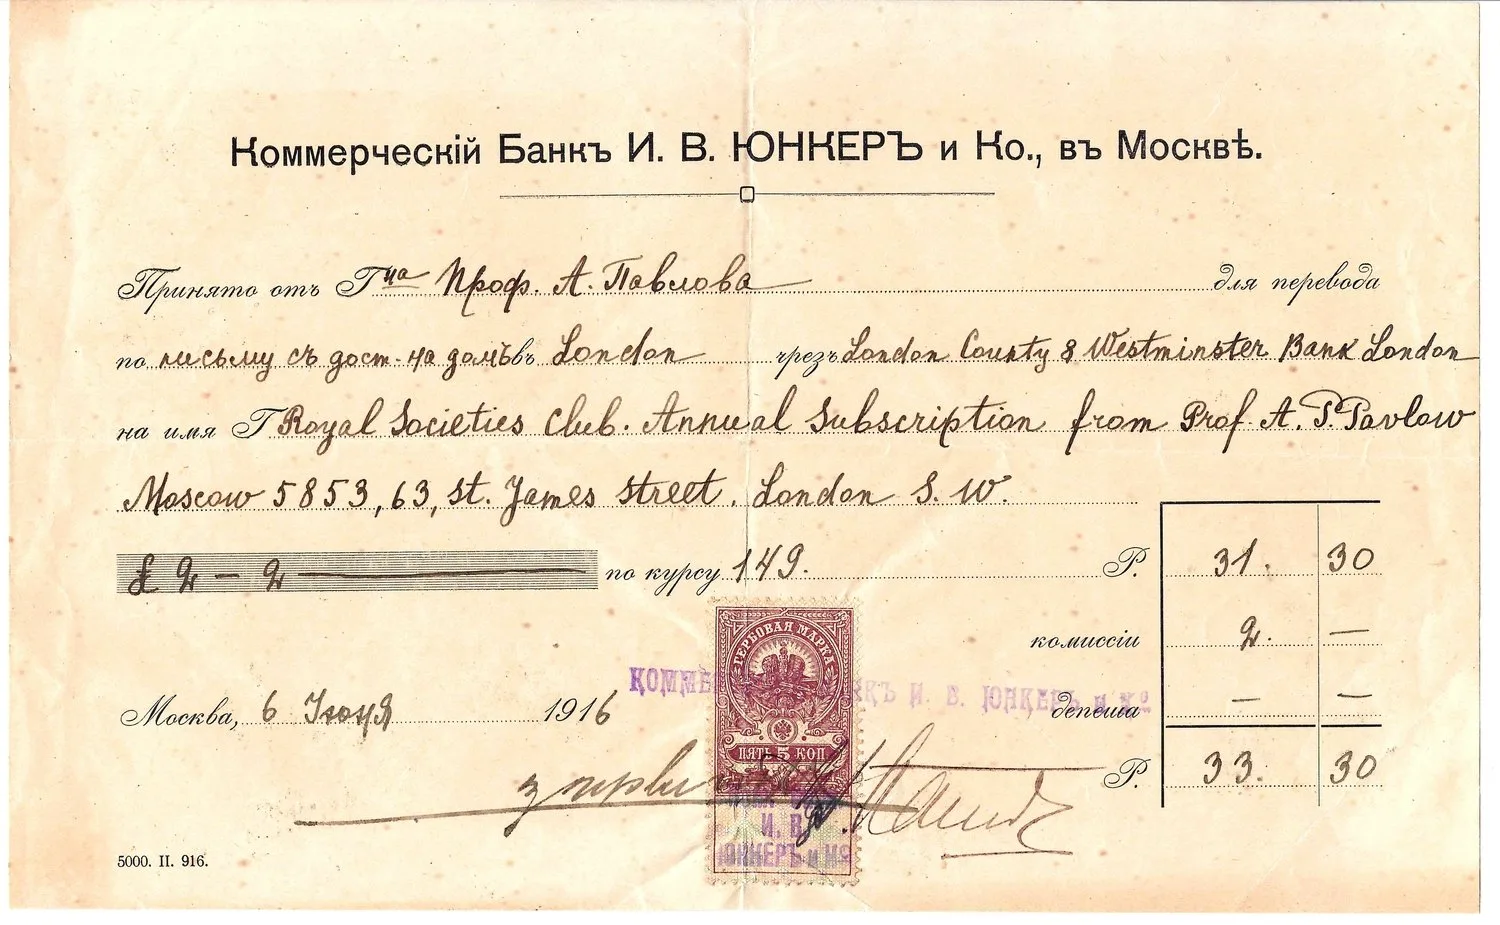 Коммерческій Банкъ И. В. ЮНКЕРЪ и Ко., въ Москвѣ.
Принято отъ Гна Проф. А. Павлова для перевода
по письму съ дост. на домъ въ London чрезъ London County & Westminster Bank London
на имя Г Royal Societies Club. Annual Subscription from Prof. A. P. Pavlow
Moscow 5853, 63, St. James Street. London S. W.
£ 2 - 2 по курсу 149. Р. 31. 30
комиссіи 2. —
Москва, 6 Іюня 1916 депеша — —
Р. 33. 30
ГЕРБОВАЯ МАРКА
ПЯТЬ 5 КОП
КОММЕ НКЪ И. В. ЮНКЕРЪ и Ко
И. В.
ЮНКЕРЪ и Ко
5000. II. 916.